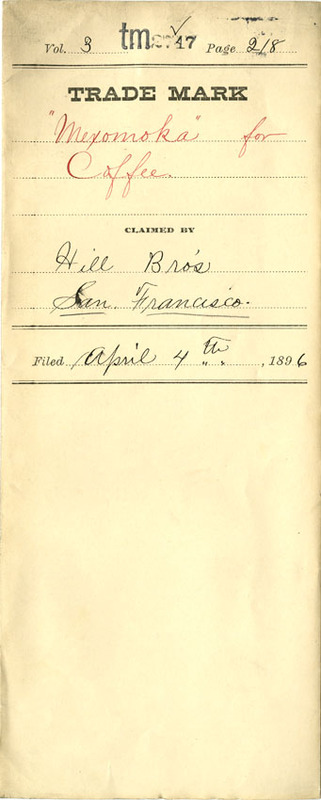 Vol. 3 tm 17 Page 218
TRADE MARK
"Mexomoka" for
Coffee.
CLAIMED BY
Hill Bro's
San Francisco.
Filed April 4th, 1896